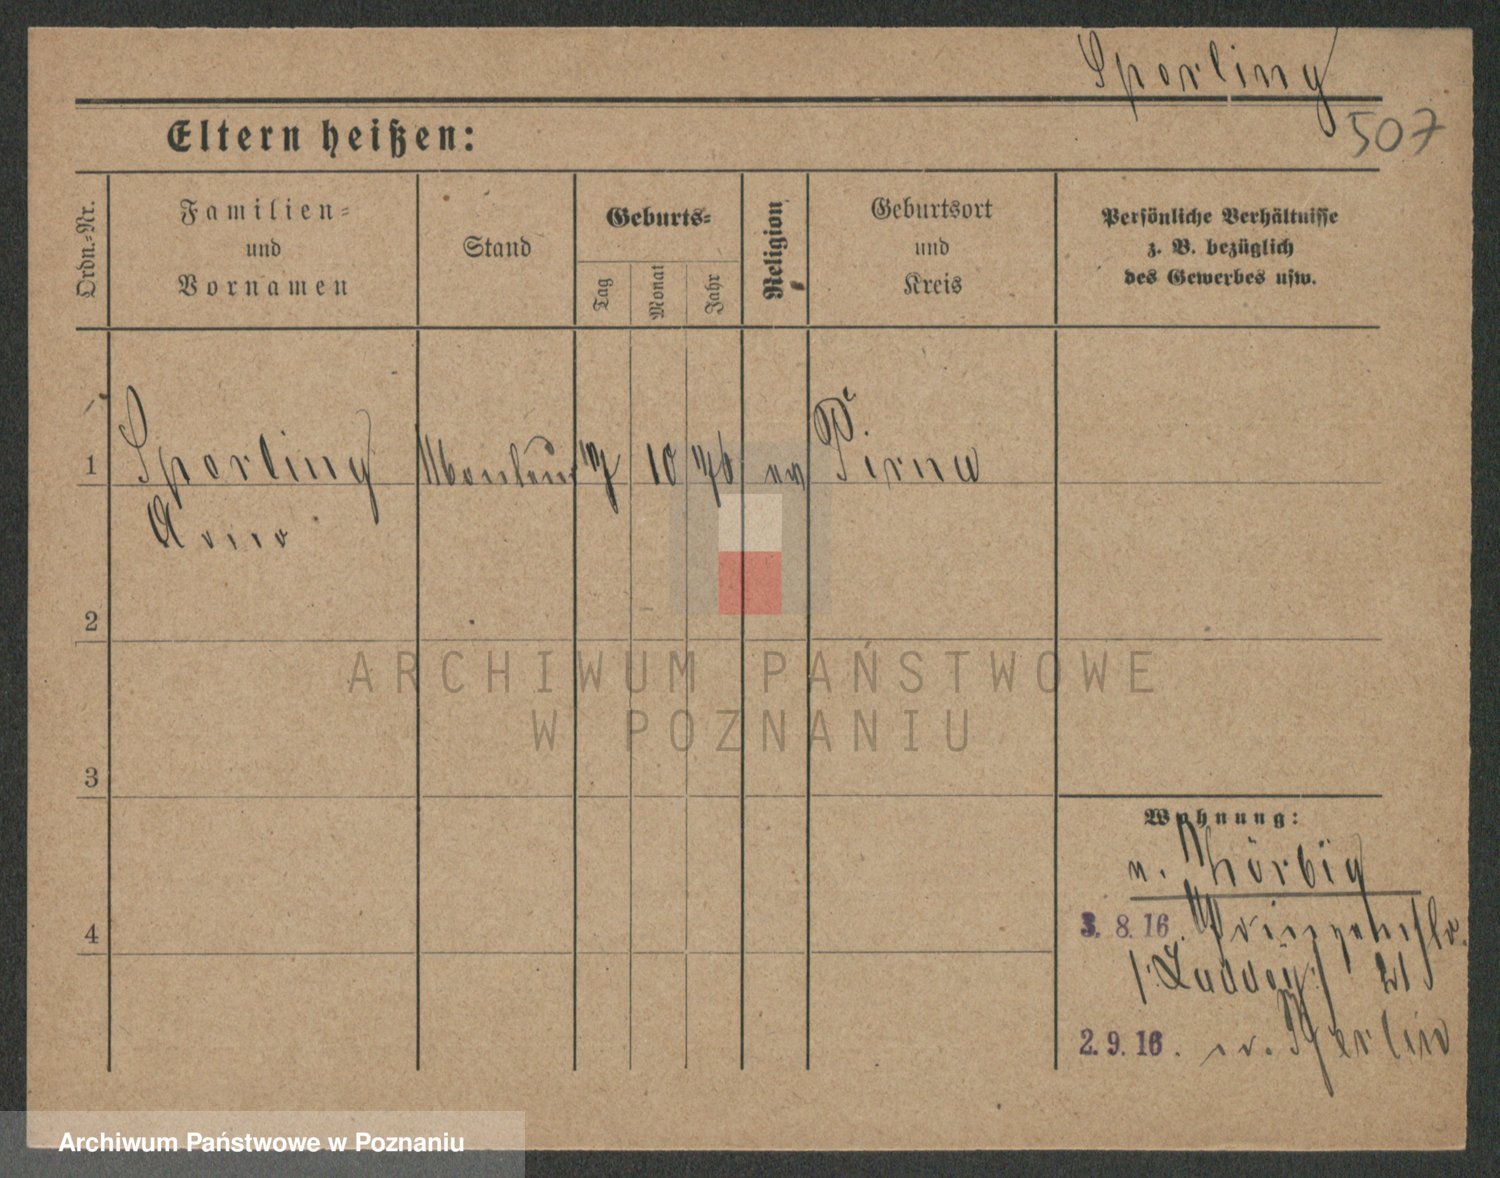 Sperling
507
Eltern heißen:
Ordn.-Nr.
Familien-
und
Vornamen
Stand
Geburts-
Tag
Monat
Jahr
Religion
Geburtsort
und
Kreis
Persönliche Verhältnisse
z. B. bezüglich
des Gewerbes usw.
1
Sperling
Arno
Monteur
10
ev
P.
Pirna
2
ARCHIWUM PAŃSTWOWE
W POZNANIU
3
Wohnung:
v. Zörbig
3. 8. 16. Prinzenstr.
21
4
2. 9. 16. n. Berlin
Archiwum Państwowe w Poznaniu